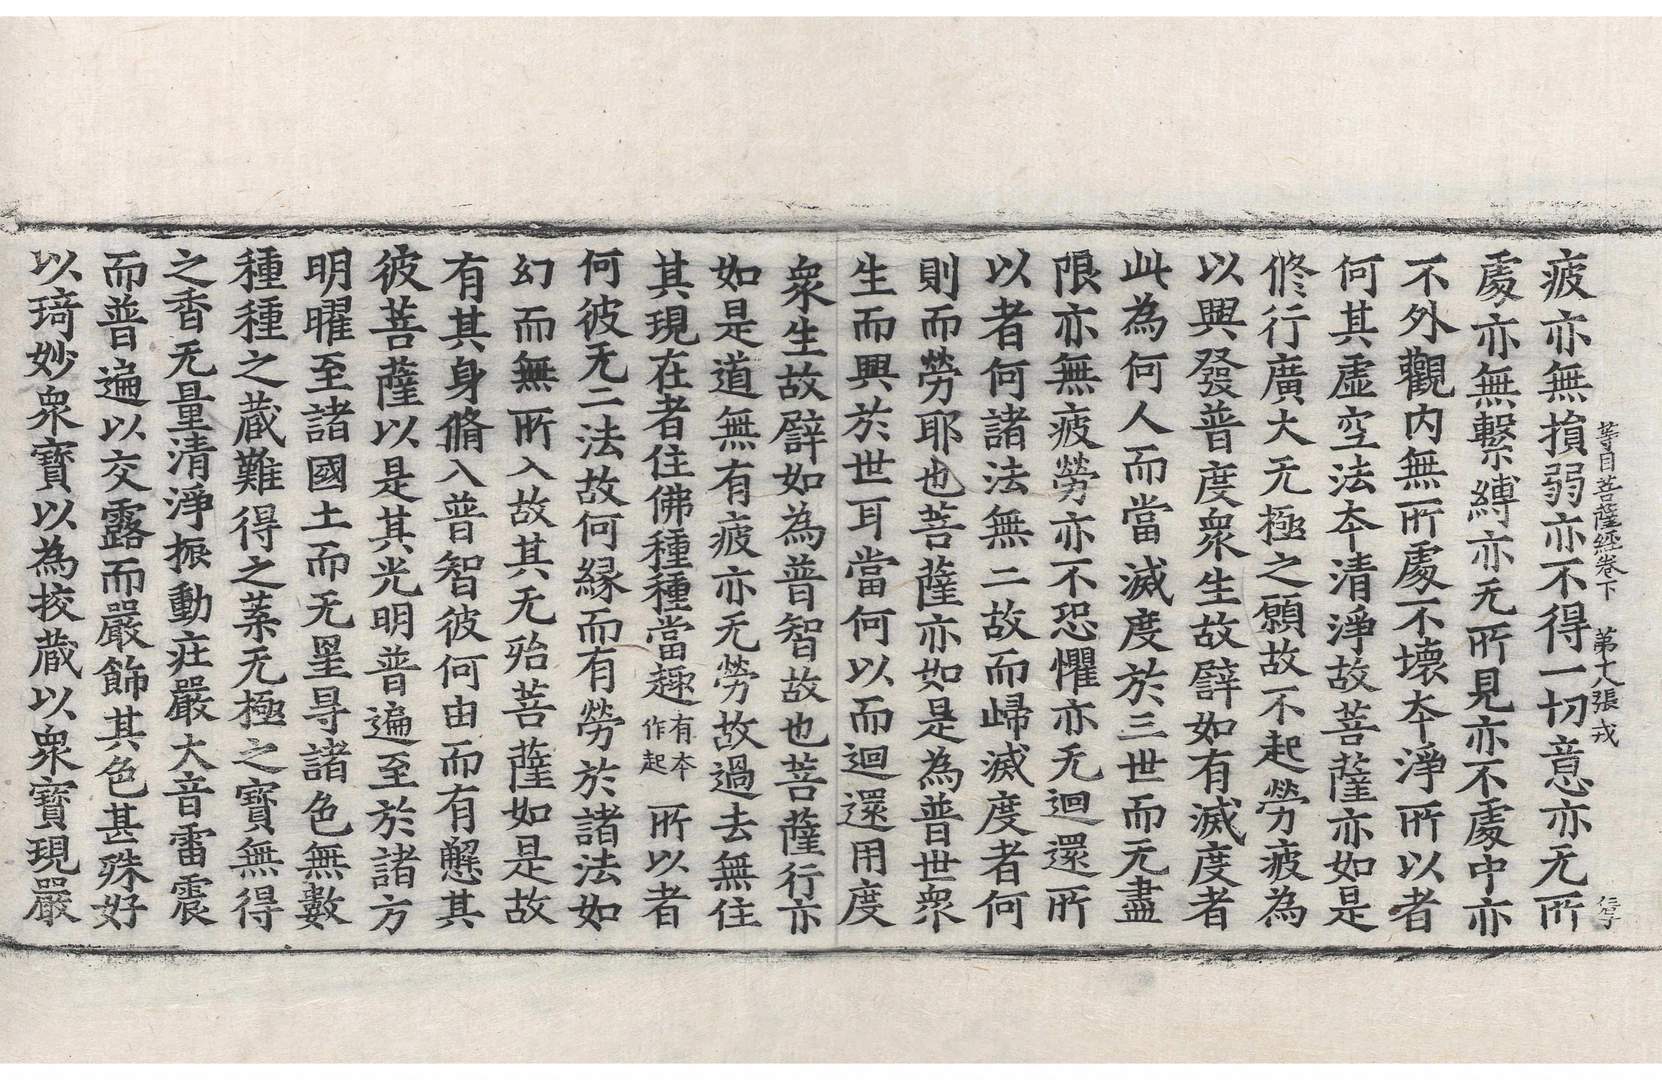 等目菩薩經卷下　第十八張　戎
疲亦無損弱亦不得一切意亦无所
處亦無繫縛亦无所見亦不處中亦
不外觀内無所處不壞夲淨所以者
何其虛空法夲清淨故菩薩亦如是
修行廣大无極之願故不起勞疲為
以興發普度衆生故譬如有滅度者
此為何人而當滅度於三世而无盡
限亦無疲勞亦不恐懼亦无迴還所
以者何諸法無二故而歸滅度者何
則而勞耶也菩薩亦如是為普世衆
生而興於世耳當何以而迴還用度
衆生故譬如為普智故也菩薩行亦
如是道無有疲亦无勞故過去無住
其現在者住佛種種當趣有夲作起所以者
何彼无二法故何緣而有勞於諸法如
幻而無所入故其无殆菩薩如是故
有其身脩入普智彼何由而有懈其
彼菩薩以是其光明普遍至於諸方
明曜至諸國土而无罣㝵諸色無數
種種之蔵難得之葉无極之寶無得
之香无量清淨振動庄嚴大音雷震
而普遍以交露而嚴飾其色甚殊好
以琦妙衆寶以為挍蔵以衆寶現嚴